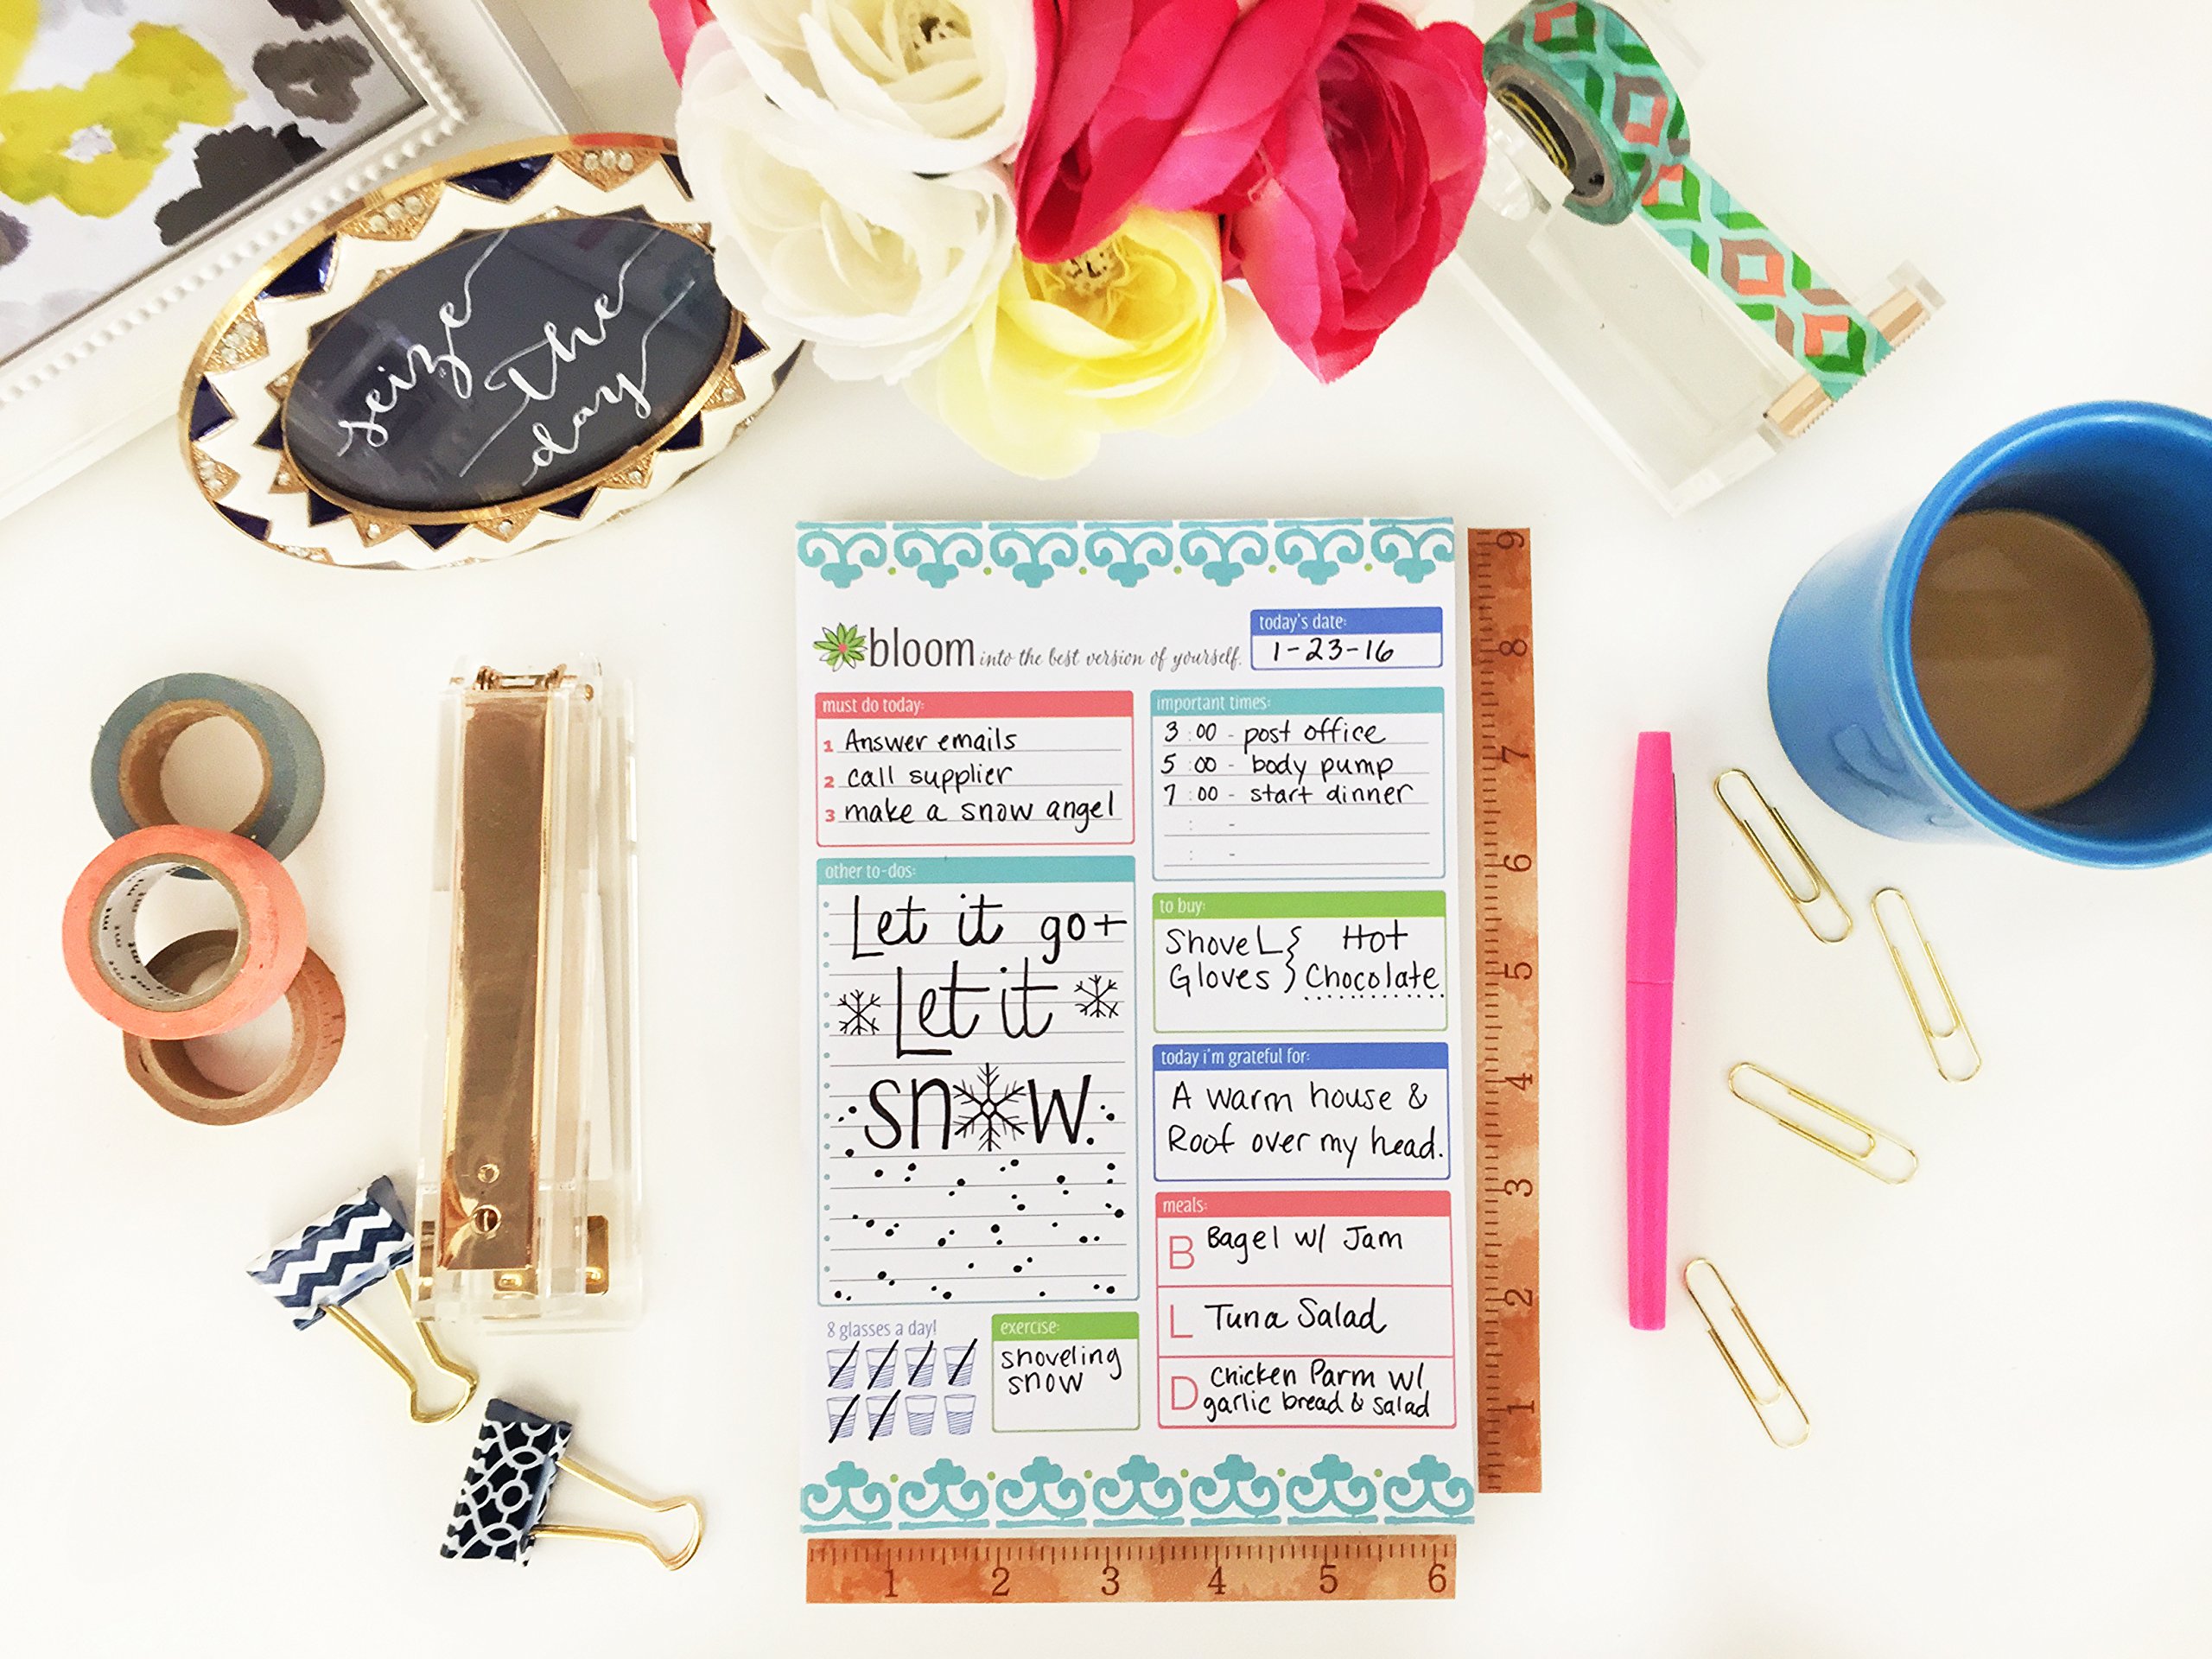 seize
the
day
bloom into the best version of yourself.
today's date:
1-23-16
must do today:
1 Answer emails
2 call supplier
3 make a snow angel
important times:
3:00 - post office
5:00 - body pump
7:00 - start dinner
: -
: -
other to-dos:
Let it go +
Let it
snow.
to buy:
Shovel } Hot
Gloves } Chocolate
today i'm grateful for:
A warm house &
Roof over my head.
meals:
B Bagel w/ Jam
L Tuna Salad
D Chicken Parm w/
garlic bread & salad
8 glasses a day!
exercise:
shoveling
snow
9
8
7
6
5
4
3
2
1
1 2 3 4 5 6
mt mt mt